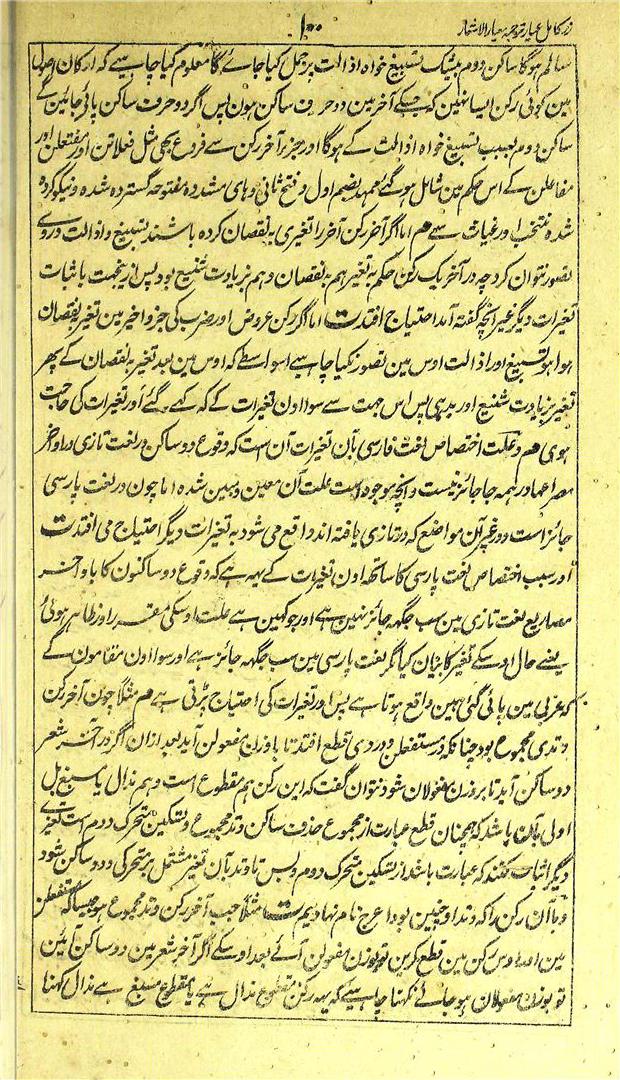 زر کامل عیار ترجمہ معیار الاشعار
۱۰۰
سالم ہوگا ساکن دوم بیشک تسبیغ خواہ اذالت پر حمل کیا جائے گا معلوم کیا چاہیے کہ ارکان اصول
مین کوئی رکن ایسا نہین کہ جسکے آخر مین دو حرف ساکن ہون پس اگر دو حرف ساکن پائے جائین گے
ساکن دوم بسبب تسبیغ خواہ اذالت کے ہوگا اور جزو آخر رکن سے فروع بھی مثل فعلاتن اور مفتعلن اور
مفاعلن کے اس حکم مین شامل ہو گئے ممہد بضم اول و فتح ثانی و ہای مشددہ مفتوحہ گستردہ شدہ و نیکو کردہ
شدہ منتخب اور غیاث سے هم اما اگر آخر رکن آخر را تغیری بہ نقصان کردہ باشند تسبیغ و اذالت در وے
تصور نتوان کرد چہ در آخر یک رکن حکم بہ تغیر ہم بہ نقصان و ہم بزیادت شنیع بود پس ازینجہت باثبات
تغیرات دیگر غیر آنچہ گفتہ آمد احتیاج افتد ت اما اگر رکن عروض اور ضرب کی جزو اخیر مین تغیر بہ نقصان
ہوا ہو تسبیغ اور اذالت اوس مین تصور نکیا چاہیے اسواسطے کہ اوس مین بعد تغیر بہ نقصان کے پھر
تغییر بزیادت شنیع اور بد ہی پس اس جہت سے سوا اون تغیرات کے کہ کہے گئے اور تغیرات کی حاجت
ہوی هم و علت اختصاص لغت فارسی بآن تغیرات آن ست کہ وقوع دو ساکن در لغت تازی در اواخر
مصراعہا در ہمہ جا جائز نیست و آنچہ موجود است علت آن معین و مبین شدہ اما چون در لغت پارسی
جائز است و در غیر آن مواضع کہ در تازی یافتہ اند واقع می شود بہ تغیرات دیگر احتیاج می افتد ت
اور سبب اختصاص لغت پارسی کا ساتھہ اون تغیرات کے یہہ ہے کہ وقوع دو ساکنون کا باواخر
مصاریع لغت تازی مین سب جگہہ جائز نہین ہے اور جو کہین ہے علت اوسکی مقرر اور ظاہر ہوئی
یعنے حال اوسکے تغیر کا بیان کیا مگر لغت پارسی مین سب جگہہ جائز ہے اور سوا اون مقامون کے
کہ عربی مین پائی گئی ہین واقع ہوتا ہے پس اور تغیرات کی احتیاج پڑتی ہے هم مثلاً چون آخر رکن
وتدی مجموع بود چنانکہ در مستفعلن و در وی قطع افتد تا باوزان مفعولن آید بعد ازان اگر در آخر شعر
دو ساکن آید تا بر وزن مفعولان شود نتوان گفت کہ این رکن ہم مقطوع است و ہم مذال یا مسبغ بل
اولی بآن باشد کہ ہمچنان قطع عبارت از مجموع حذف ساکن وتد مجموع و تسکین متحرک دوم است تغیرے
دیگر اثبات کنند کہ عبارت باشد از تسکین متحرک دوم و بس تا وتد بآن تغیر مشتمل بر متحرکی و دو ساکن شود
و ما آن رکن را کہ وتد او چنین بود اعرج نام نہادیم ت مثلاً جب آخر رکن وتد مجموع ہو جیسا کہ مستفعلن
مین اور اوس رکن مین قطع کرین تو بوزن مفعولن آئے بعد اوسکے اگر آخر شعر مین دو ساکن آئین
تو بوزن مفعولان ہو جائے نکہنا چاہیے کہ یہہ رکن مقطوع مذال ہے یا مقطوع مسبغ ہے مذال کہنا